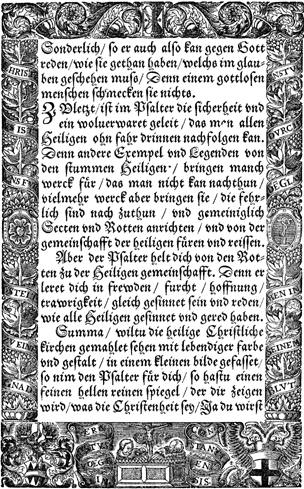 Sonderlich / so er auch also kan gegen Gott
reden / wie sie gethan haben / welchs im glau-
ben geschehen muss / Denn einem gottlosen
menschen schmecken sie nichts.
ZVletzt / ist im Psalter die sicherheit vnd
ein wolverwaret geleit / das man allen
Heiligen ohn fahr drinnen nachfolgen kan.
Denn andere Exempel vnd Legenden von
den stummen Heiligen / bringen manch
werck für / das man nicht kan nachthun /
vielmehr werck aber bringen sie / die fehr-
lich sind nach zuthun / vnd gemeiniglich
Secten vnd Rotten anrichten / vnd von der
gemeinschafft der heiligen füren vnd reissen.
Aber der Psalter helt dich von den Rot-
ten zu der Heiligen gemeinschafft. Denn er
leret dich in frewden / furcht / hoffnung /
trawrigkeit / gleich gesinnet sein vnd reden /
wie alle Heiligen gesinnet vnd gered haben.
Summa / wiltu die heilige Christliche
kirchen gemahlet sehen mit lebendiger farbe
vnd gestalt / in einem kleinen bilde gefasset /
so nim den Psalter für dich / so hastu einen
feinen hellen reinen spiegel / der dir zeigen
wird / was die Christenheit sey / Ja du wirst